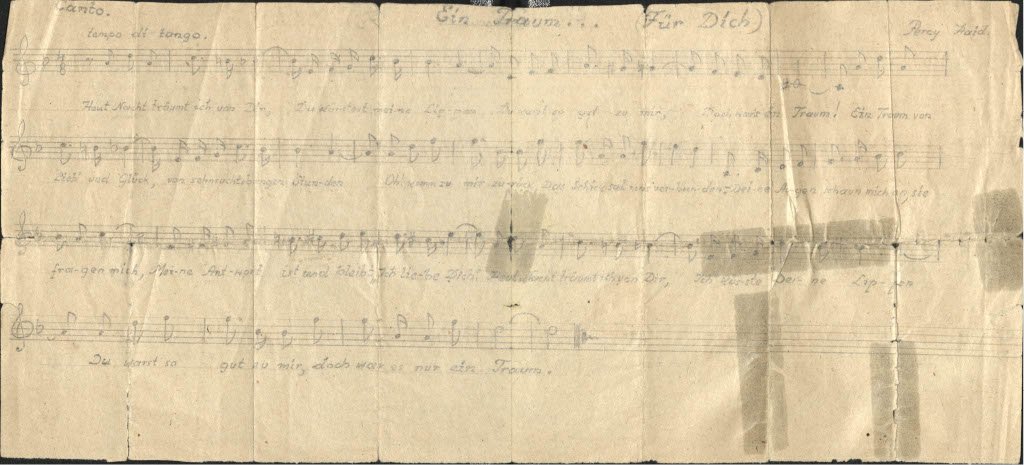 Canto.
Ein Traum... (Für Dich)
tempo di tango.
Percy Haid.
Heut Nacht träumt ich von Dir, Du küsstest mei-ne Lip-pen Du warst so gut zu mir, Doch war's ein Traum! Ein Traum von
Lieb' und Glück, von sehnsuchtsbangen Stun-den Oh! komm zu mir zu-rück, Das Schicksal uns ver-bun-den; Dei-ne Augen schaun mich an, sie
fra-gen mich, Mei-ne Ant-wort ist und bleibt, Ich lie-be Dich! Heut Nacht träumt ich von Dir, Ich küs-ste Dei-ne Lip-pen
Du warst so gut zu mir, doch war es nur ein Traum.